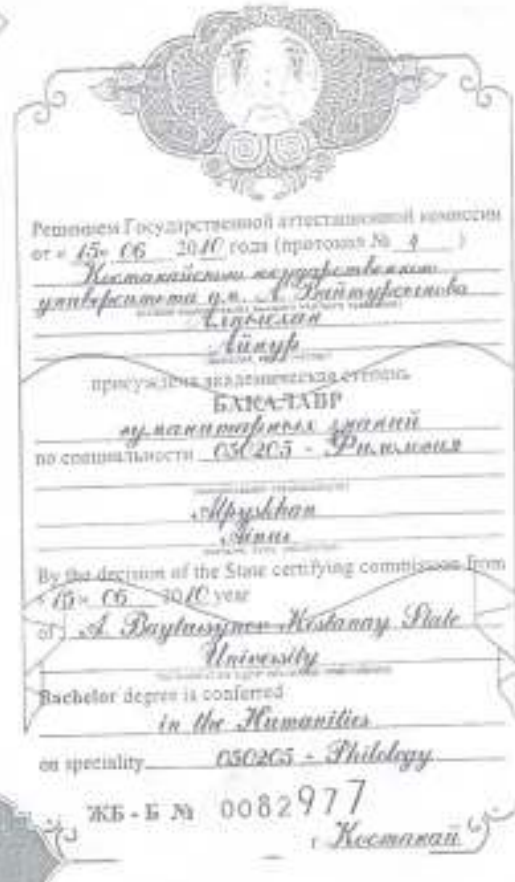 Решением Государственной аттестационной комиссии
от « 15 » 06 2010 года (протокол № 4 )
Костанайского государственного
университета им. А. Байтурсынова
Айнур
присуждена академическая степень
БАКАЛАВР
гуманитарных знаний
по специальности 050205 - Филология
Alpyskhan
By the decision of the State certifying commission from
« 15 » 06 2010 year
of A. Baytursynov Kostanay State
University
Bachelor degree is conferred
in the Humanities
on speciality 050205 - Philology
ЖБ - Б № 0082977
г Костанай